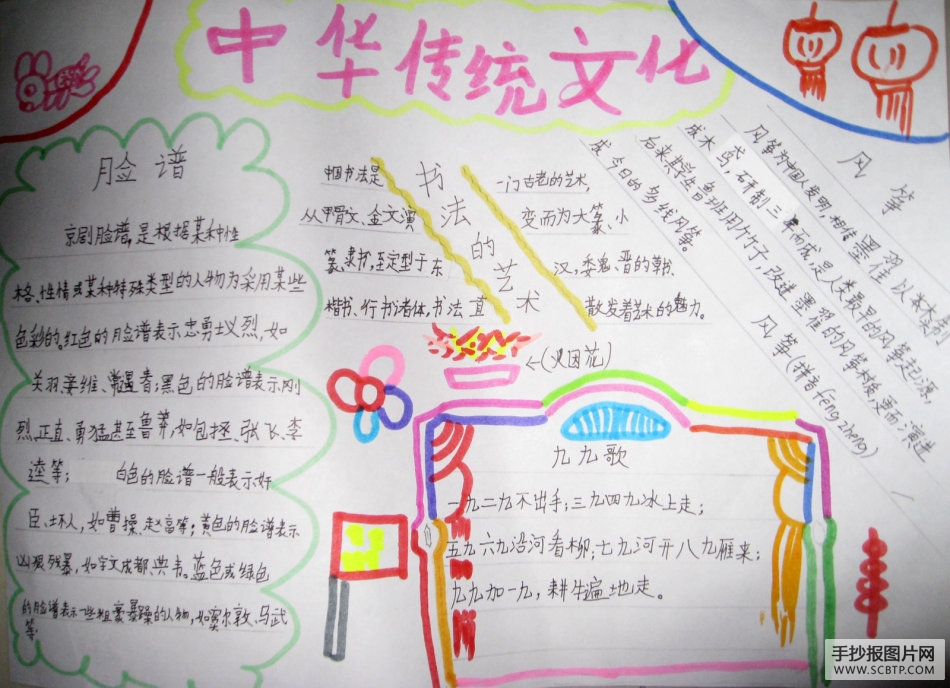 中华传统文化
脸 谱
京剧脸谱,是根据某种性
格、性情或某种特殊类型的人物为采用某些
色彩的。红色的脸谱表示忠勇士义烈,如
关羽、姜维、常遇春;黑色的脸谱表示刚
烈、正直、勇猛甚至鲁莽,如包拯、张飞、李
逵等;白色的脸谱一般表示奸
臣、坏人,如曹操、赵高等;黄色的脸谱表示
凶狠残暴,如宇文成都、典韦。蓝色或绿色
的脸谱表示一些粗豪暴躁的人物,如窦尔敦、马武
等
书法的艺术
中国书法是一门古老的艺术,
从甲骨文、金文演变而为大篆、小
篆、隶书,至定型于东汉、魏、晋的草书、
楷书、行书诸体,书法一直散发着艺术的魅力。
风 筝
风筝为中国人发明,相传墨翟以木头制
成木鸟,研制三年而成,是人类最早的风筝起源。
后来其学生鲁班用竹子,改进墨翟的风筝材质,更而演进
成今日的多线风筝。
风筝(拼音fengzheng)
←(火因花)
九九歌
一九二九不出手;三九四九冰上走;
五九六九沿河看柳;七九河开八九雁来;
九九加一九,耕牛遍地走。
手抄报图片网
WWW.SCBTP.COM